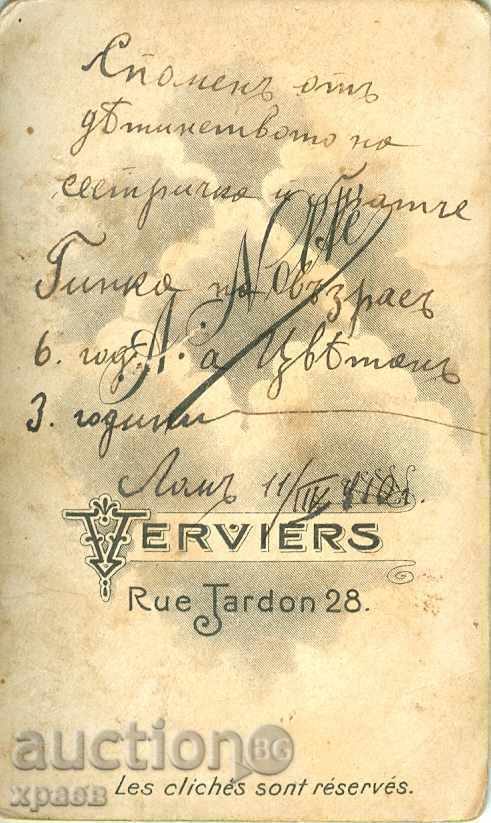 Споменъ отъ
дѣтинството на
сестричка и братче
Гинка на възрасъ
6. год. а Цвѣтанъ
3. години
Ломъ 11/III
VERVIERS
Rue Jardon 28.
auction BG
храев
Les clichés sont réservés.